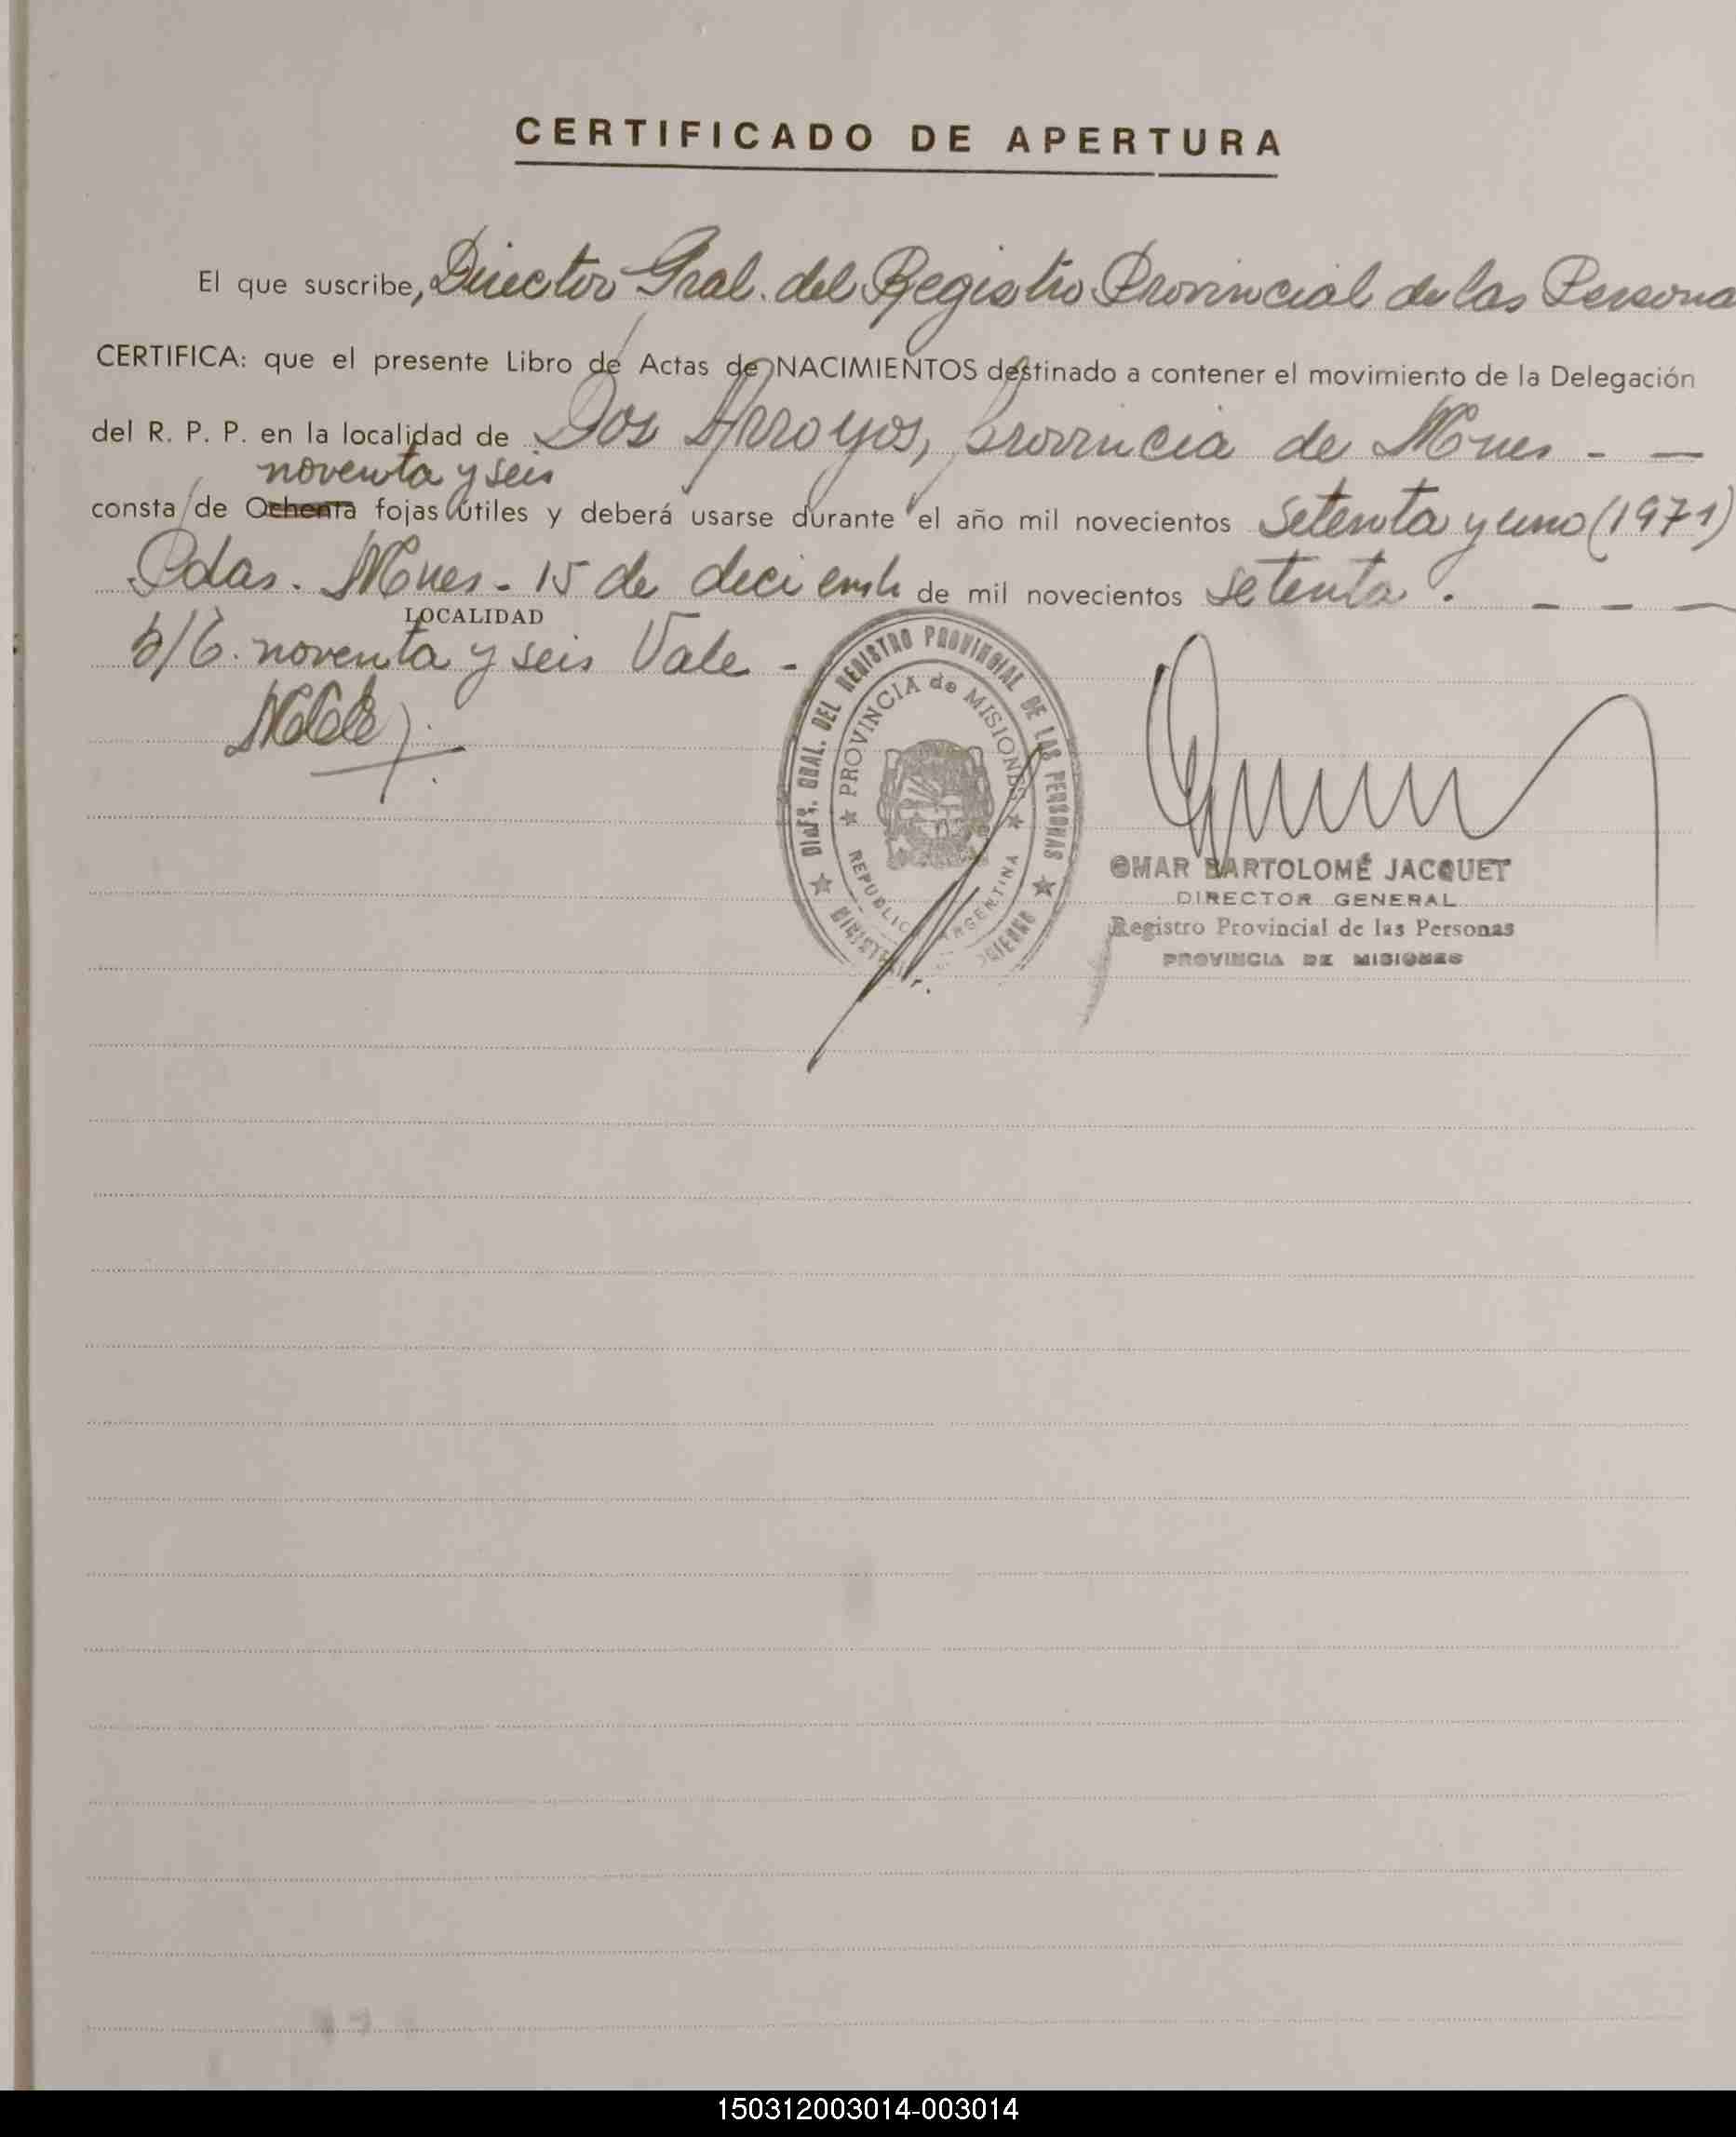 CERTIFICADO DE APERTURA
El que suscribe, Director Gral. del Registro Provincial de las Persona
CERTIFICA: que el presente Libro de Actas de NACIMIENTOS destinado a contener el movimiento de la Delegación
del R. P. P. en la localidad de Dos Arroyos, provincia de Mnes - —
noventa y seis
consta de Ochenta fojas útiles y deberá usarse durante el año mil novecientos setenta y uno (1971)
Pdas. Mnes - 15 de deciemb de mil novecientos setenta. - - -
LOCALIDAD
noventa y seis Vale -
DIREC. GRAL. DEL REGISTRO PROVINCIAL DE LAS PERSONAS
PROVINCIA de MISIONES
REPUBLICA ARGENTINA
OMAR BARTOLOMÉ JACQUET
DIRECTOR GENERAL
Registro Provincial de las Personas
PROVINCIA DE MISIONES
150312003014-003014